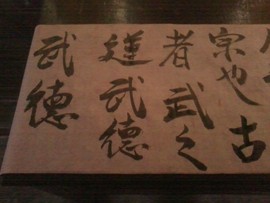 宗也古
者武之
武德
武德